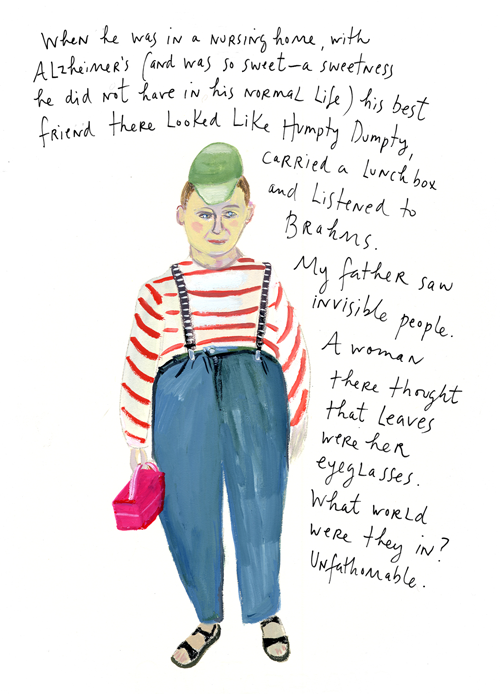 When he was in a nursing home, with
Alzheimer's (and was so sweet—a sweetness
he did not have in his normal life) his best
friend there looked like Humpty Dumpty,
carried a lunchbox
and listened to
Brahms.
My father saw
invisible people.
A woman
there thought
that leaves
were her
eyeglasses.
What world
were they in?
Unfathomable.